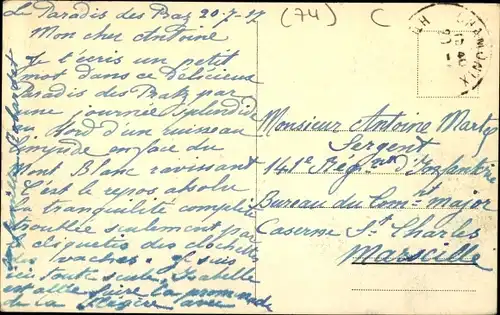 Le Paradis des Praz 20-7-37
Mon cher Antoine
Je t'écris un petit
mot dans ce délicieux
Paradis des Praz par
une journée splendide
Bord d'un ruisseau
limpide en face du
Mont Blanc ravissant
C'est le repos absolu
la tranquilité complète
troublée seulement par
le cliquetis des clochettes
des vaches. Je suis
ici toute seule, Isabelle
est allée faire la promenade
de la Flégère avec
(74)
C
CHAMONIX
Monsieur Antoine Marty
Sergent
141e Régt d'Infanterie
Bureau du Comt major
Caserne St Charles
Marseille